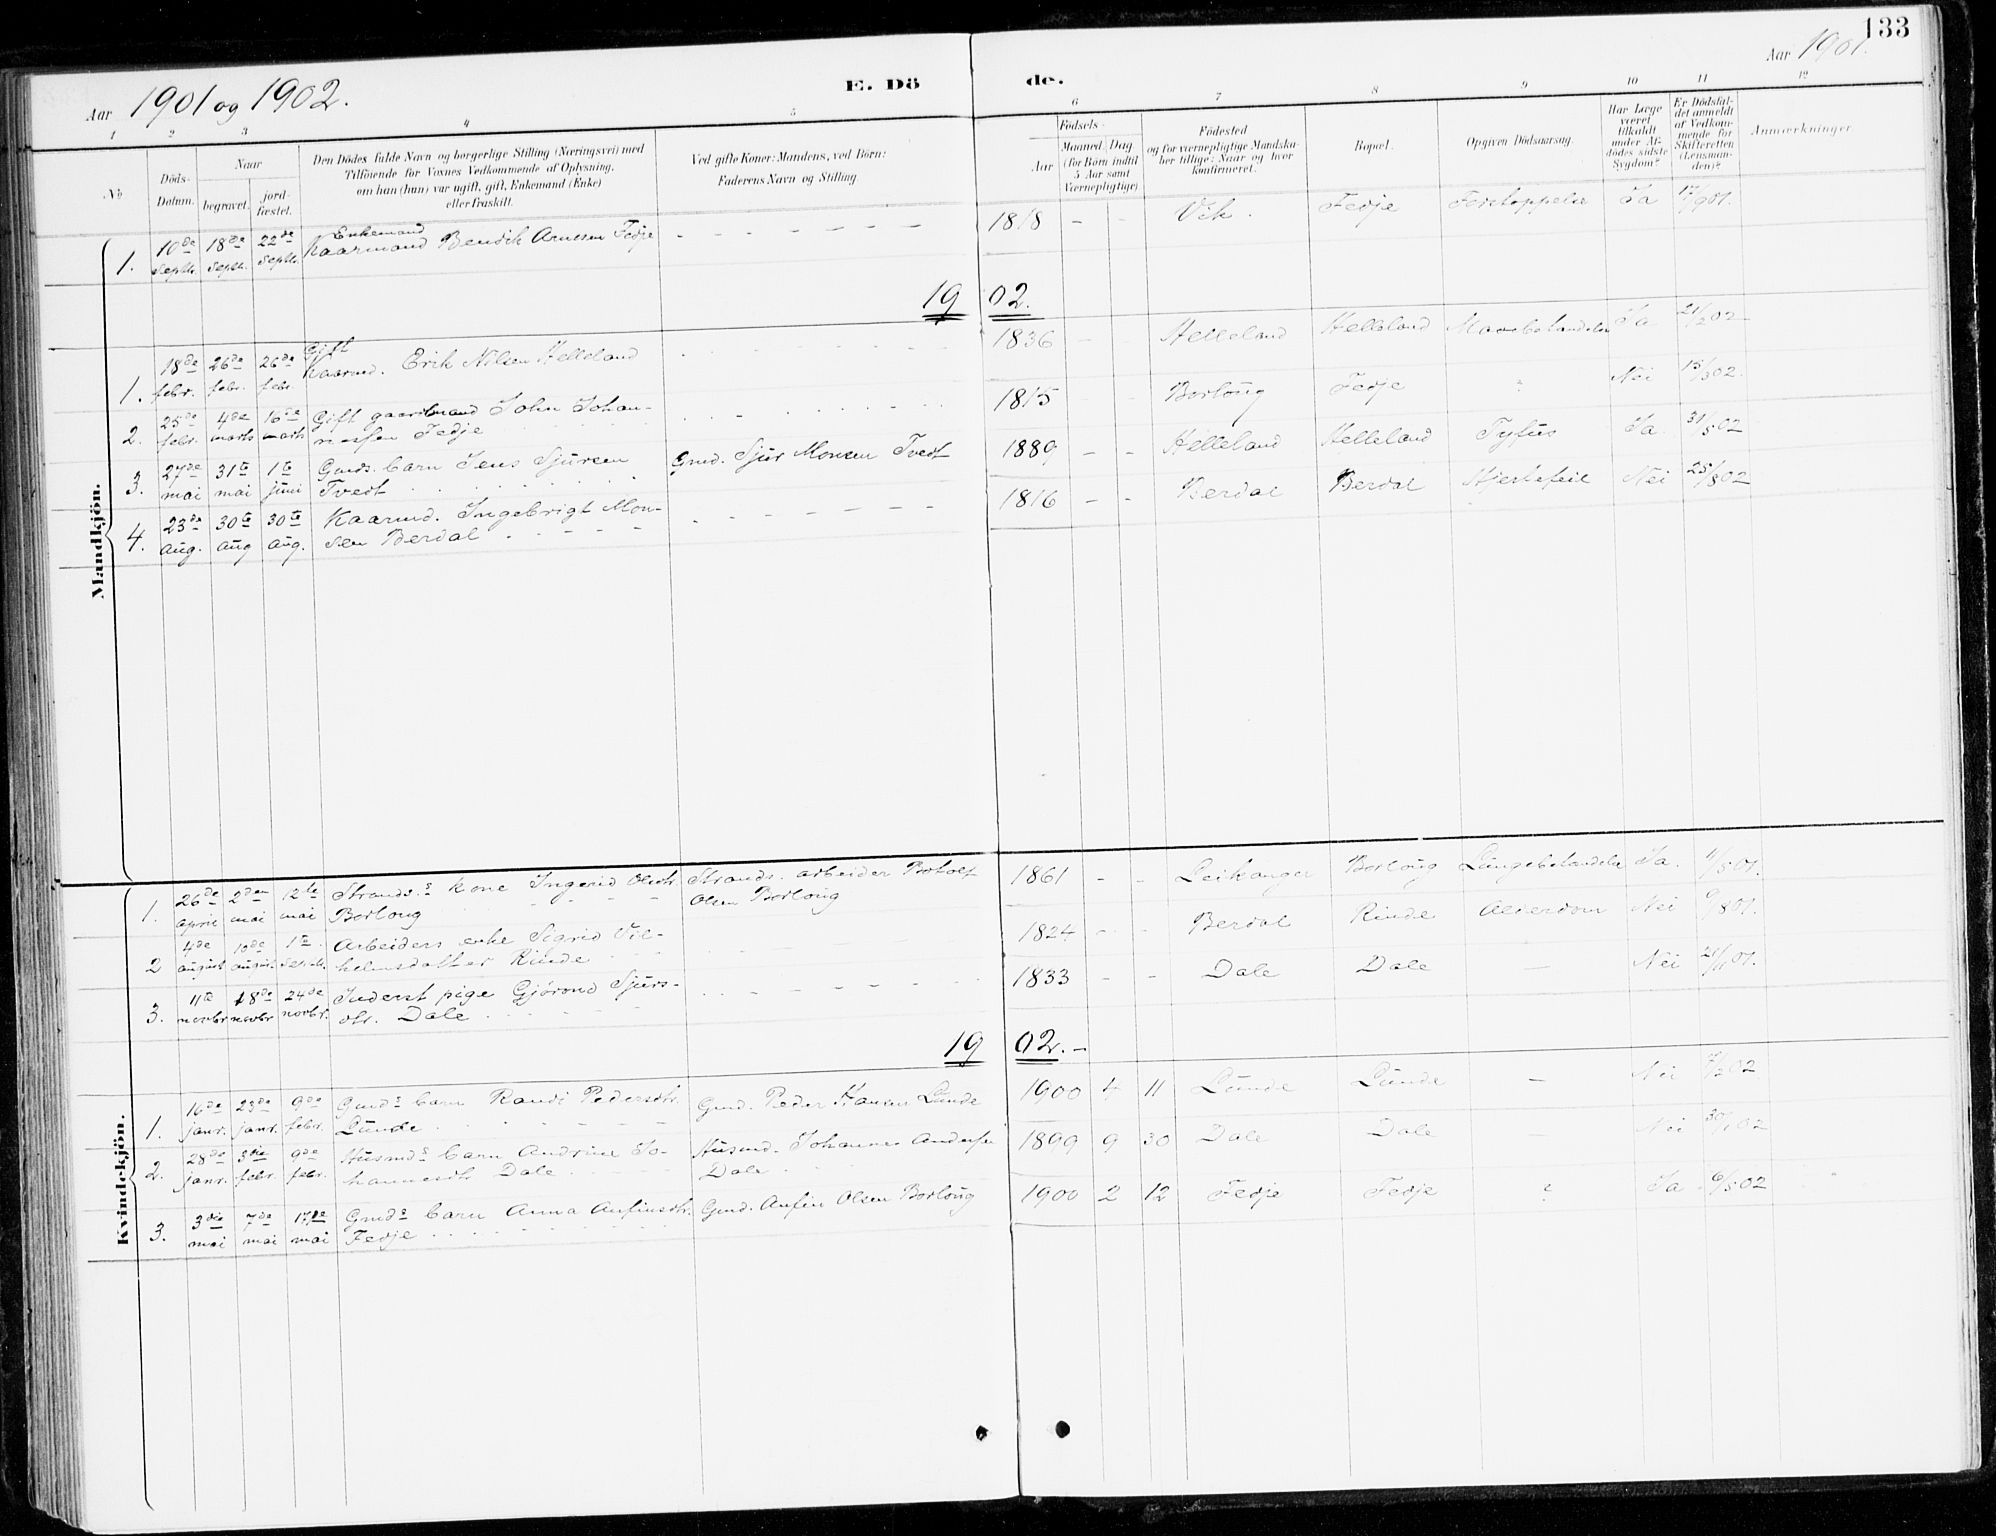 133
Aar 1901 og 1902.
E. Dö de.
Aar 1901.
1 2 3 4 5 6 7 8 9 10 11 12
No
Döds-Datum.
Naar begravet. jordfæstet.
Den Dödes fulde Navn og borgerlige Stilling (Næringsvei) med Tilföiende for Voxnes Vedkommende af Oplysning, om han (hun) var ugift, gift, Enkemand (Enke) eller fraskilt.
Ved gifte Koner: Mandens, ved Börn: Faderens Navn og Stilling.
Födsels-
Aar
Maaned Dag (for Börn indtil 5 Aar samt Værnepligtige)
Födested og for værnepligtige Mandskaber tillige: Naar og hvor konfirmeret.
Bopæl.
Opgiven Dödsaarsag.
Har Læge været tilkaldt under Afdödes sidste Sygdom?
Er Dödsfaldet anmeldt af Vedkommende for Skifteretten (Lensmanden)?
Anmærkninger
Mandkjön.
1. 10de septb. 18de septb. 22de septb. Enkemand Kaarmand Bendik Arnesen Fedje - - - - - - - 1818 - - Vik. Fedje Ja 17/9 01.
1902.
1. 18de febr. 26de febr. 26de febr. Gift Kaarmd. Erik Nilsen Helleland 1836 - - Helleland Helleland Ja 21/2 02
2. 25de febr. 4de marts 16de marts Gift gaardmand John Johannessen Fedje 1815 Borloug Fedje ? Nei 15/3 02.
3. 27de mai 31te mai 1te juni Gmds. barn Jens Sjursen Tvedt Gmd. Sjur Monsen Tvedt 1889 - - Helleland Helleland Tyfus Ja. 31/5 02
4. 23de aug. 30te aug 30te aug. Kaarmd. Ingebrigt Monsen Berdal 1816 - - Berdal Berdal Hjertefeil Nei 25/8 02
Kvindekjön.
1. 26de april 2den mai 12te mai Strands.s kone Ingerid Olsdtr. Borloug Strands. arbeider Botolf Olsen Borloug 1861 - - Leikanger Borloug Ja. 11/5 01.
2 4de august 10de august 1te Arbeiders enke Sigrid Vilhelmsdatter Rinde 1824 - - Berdal Rinde Alderdom Nei 9/8 01.
3. 11te novbr 18de novbr 24de novbr. Inderst pige Gjörond Sjursdtr. Dale 1833 - - Dale Dale - Nei 21/11 01.
1902.-
1. 16de janr. 23de janr. 9de febr. Gmds barn Randi Pedersdtr. Lunde Gmd. Peder Hansen Lunde 1900 4 11 Lunde Lunde - Nei 7/2 02
2. 28de janr. 3die febr. 9de febr. Husmds barn Andrine Johannesdtr Dale Husmd. Johannes Andersen Dale 1899 9 30 Dale Dale Nei 30/1 02
3. 3die mai 7de mai 17de mai Gmds barn Anna Anfinsdtr. Fedje Gmd. Anfin Olsen Borloug 1900 2 12 Fedje Fedje ? Ja 6/5 02